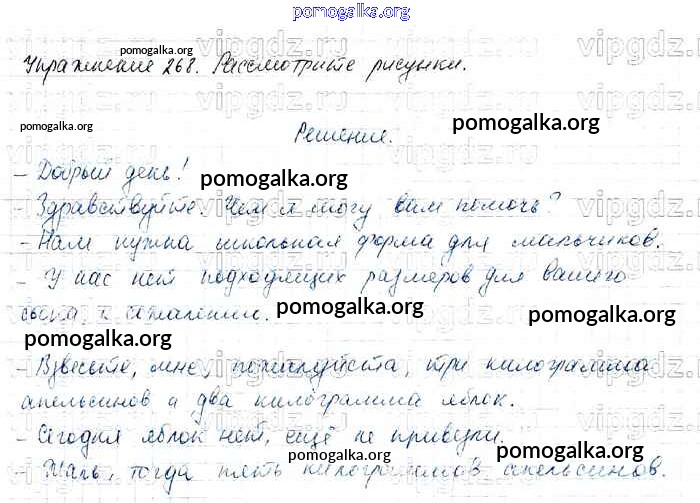 pomogalka.org
Упражнение 268. Рассмотрите рисунки.
pomogalka.org
vipgdz.ru
Решение.
pomogalka.org
pomogalka.org
- Добрый день!
pomogalka.org
- Здравствуйте. Чем я могу вам помочь?
- Нам нужна школьная форма для мальчиков.
- У нас нет подходящих размеров для вашего
сына, к сожалению.
pomogalka.org
pomogalka.org
pomogalka.org
- Взвесьте, мне, пожалуйста, три килограмма
апельсинов и два килограмма яблок.
- Сегодня яблок нет, ещё не привезли.
pomogalka.org
pomogalka.org
- Жаль, тогда пять килограммов апельсинов.